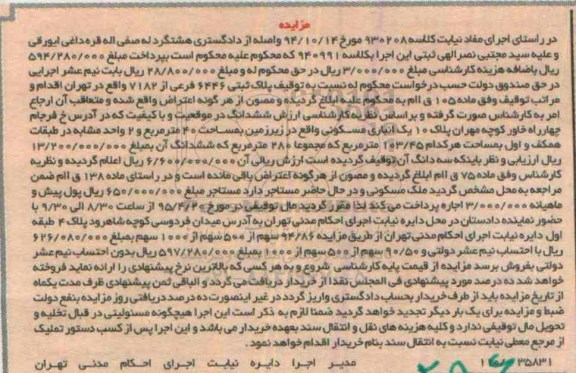 مزایده
در راستای اجرای مفاد نیابت کلاسه ۹۳۰۲۰۸ مورخ ۹۴/۱۰/۱۴ واصله از دادگستری هشتگرد له صفی اله قره داغی ایورقی
و علیه سید مجتبی نصرالهی ثبتی این اجرا بکلاسه ۹۴۰۹۹۱ که محکوم علیه محکوم است بپرداخت مبلغ ۵۹۴/۲۸۰/۰۰۰
ریال باضافه هزینه کارشناسی مبلغ ۳/۰۰۰/۰۰۰ ریال در حق محکوم له و مبلغ ۲۸/۸۰۰/۰۰۰ ریال بابت نیم عشر اجرایی
در حق صندوق دولت حسب درخواست محکوم له نسبت به توقیف پلاک ثبتی ۶۴۴۶ فرعی از ۷۱۸۲ واقع در تهران اقدام و
مراتب توقیف وفق ماده ۱۰۵ ق اام به محکوم علیه ابلاغ گردیده و مصون از هر گونه اعتراض واقع شده و متعاقب آن ارجاع
امر به کارشناس صورت گرفته و بر اساس نظریه کارشناسی ارزش ششدانگ در موقعیت و با کیفیت که در آدرس خ فرجام
چهارراه خاور کوچه مهران پلاک ۱۰ یک انباری مسکونی واقع در زیرزمین بمساحت ۴۰ مترمربع و ۲ واحد مشابه در طبقات
همکف و اول بمساحت هرکدام ۱۰۳/۴۵ مترمربع که مجموعا ۲۸۰ مترمربع که ششدانگ آن بمبلغ ۱۳/۲۰۰/۰۰۰/۰۰۰
ریال ارزیابی و نظر باینکه سه دانگ آن توقیف گردیده است ارزش ریالی آن ۶/۶۰۰/۰۰۰/۰۰۰ ریال اعلام گردیده و نظریه
کارشناس وفق ماده ۷۵ ق اام ابلاغ گردیده و مصون از هرگونه اعتراض باقی مانده است و در راستای ماده ۱۳۸ ق اام ضمن
مراجعه به محل مشخص گردید ملک مسکونی و در حال حاضر مستاجر دارد مستاجر مبلغ ۶۵۰/۰۰۰/۰۰۰ ریال پول پیش و
ماهیانه ۳/۰۰۰/۰۰۰ اجاره پرداخت می کند لذا مقرر گردید مال توقیفی در مورخ ۹۵/۴/۲۰ از ساعت ۸/۳۰ الی ۹/۳۰ با
حضور نماینده دادستان در محل دایره نیابت اجرای احکام مدنی تهران به آدرس میدان فردوسی کوچه شاهرود پلاک ۴ طبقه
اول دایره نیابت اجرای احکام مدنی تهران از طریق مزایده ۹۴/۸۶ سهم از ۵۰۰ سهم از ۱۰۰۰ سهم بمبلغ ۶۲۶/۰۸۰/۰۰۰
ریال با احتساب نیم عشر دولتی و ۹۰/۵۰ سهم از ۵۰۰ سهم از ۱۰۰۰ بمبلغ ۵۹۷/۲۸۰/۰۰۰ ریال بدون احتساب نیم عشر
دولتی بفروش برسد مزایده از قیمت پایه کارشناسی شروع و به هر کسی که بالاترین نرخ پیشنهادی را ارائه نماید فروخته
خواهد شد ده درصد مورد پیشنهادی فی المجلس نقدا از خریدار دریافت می گردد و الباقی ثمن پیشنهادی ظرف مدت یکماه
از تاریخ مزایده باید از طرف خریدار بحساب دادگستری واریز گردد در غیر اینصورت ده درصد دریافتی روز مزایده بنفع دولت
ضبط و مزایده برای یک بار دیگر تجدید خواهد گردید ضمنا لازم به ذکر است این اجرا هیچگونه مسئولیتی در قبال تخلیه و
تحویل مال توقیفی ندارد و کلیه هزینه های نقل و انتقال سند بعهده خریدار می باشد و این اجرا پس از کسب دستور تملیک
از مرجع معطی نیابت نسبت به انتقال سند بنام خریدار اقدام خواهد نمود.
مدیر اجرا دایره نیابت اجرای احکام مدنی تهران